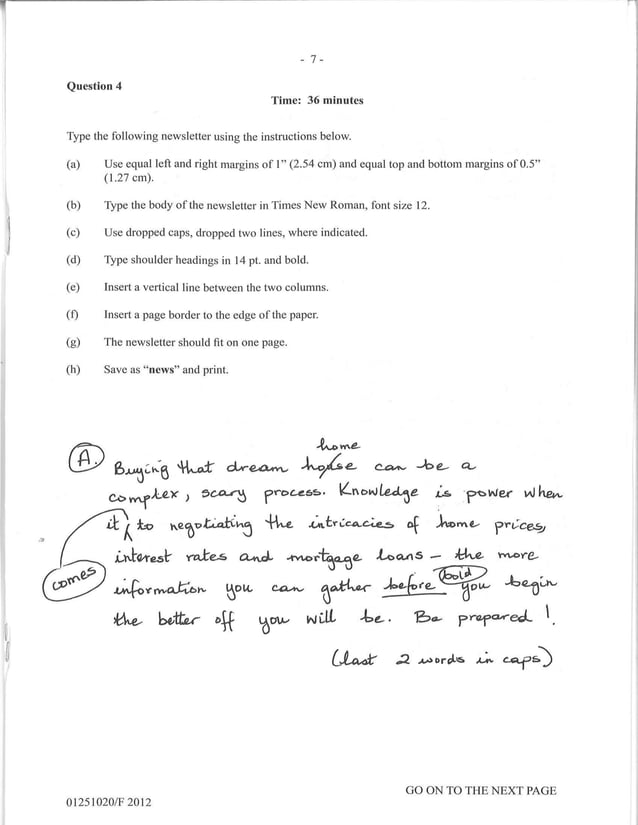 - 7 -
Question 4
Time: 36 minutes
Type the following newsletter using the instructions below.
(a) Use equal left and right margins of 1” (2.54 cm) and equal top and bottom margins of 0.5”
(1.27 cm).
(b) Type the body of the newsletter in Times New Roman, font size 12.
(c) Use dropped caps, dropped two lines, where indicated.
(d) Type shoulder headings in 14 pt. and bold.
(e) Insert a vertical line between the two columns.
(f) Insert a page border to the edge of the paper.
(g) The newsletter should fit on one page.
(h) Save as “news” and print.
home
A. Buying that dream house can be a
complex, scary process. Knowledge is power when
it to negotiating the intricacies of home prices,
interest rates and mortgage loans – the more
comes
bold
information you can gather before you begin
the better off you will be. Be prepared!
(last 2 words in caps)
GO ON TO THE NEXT PAGE
01251020/F 2012